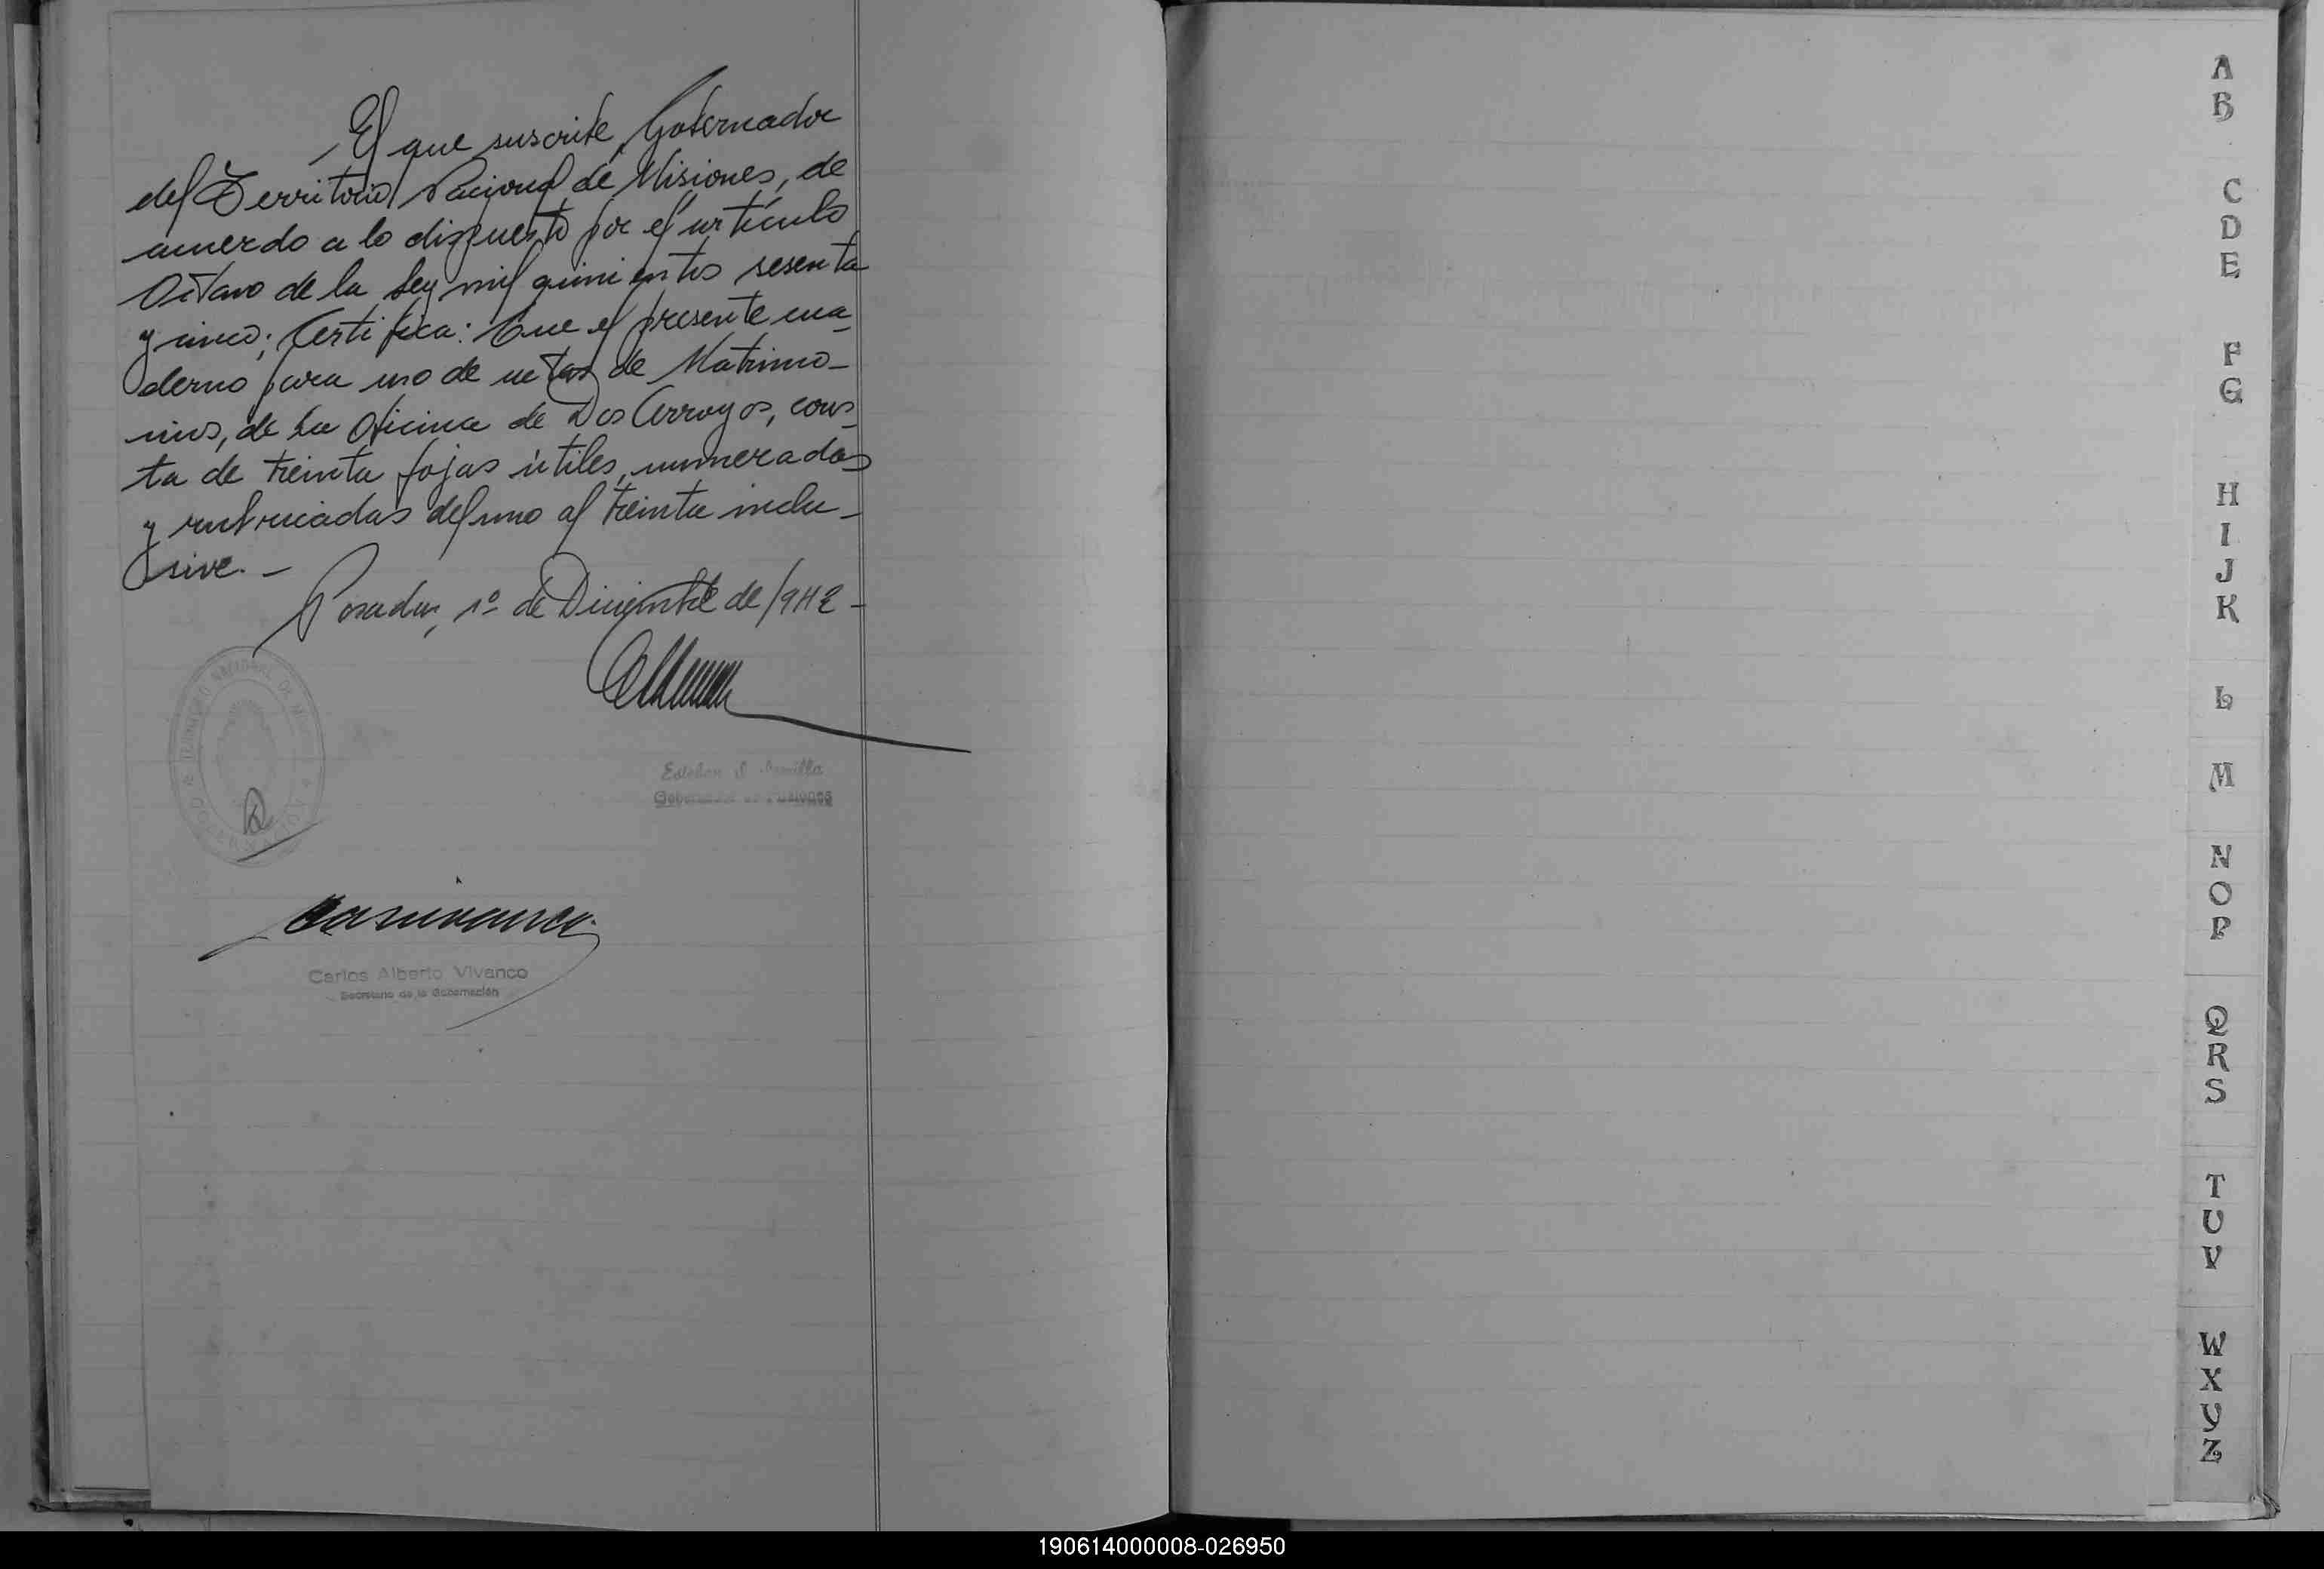 El que suscribe, Gobernador
del Territorio Nacional de Misiones, de
acuerdo a lo dispuesto por el artículo
Octavo de la Ley mil quinientos sesenta
y cinco; Certifica: Que el presente cua-
derno para uso de actas de Matrimo-
nios, de la Oficina de Dos Arroyos, cons-
ta de treinta fojas útiles, numeradas
y rubricadas del uno al treinta inclu-
sive. -
Posadas, 1º de Diciembre de 1942 -
Carlos Alberto Vivanco
Secretario de la Gobernación
A
B
C
D
E
F
G
H
I
J
K
L
M
N
O
P
Q
R
S
T
U
V
W
X
Y
Z
190614000008-026950